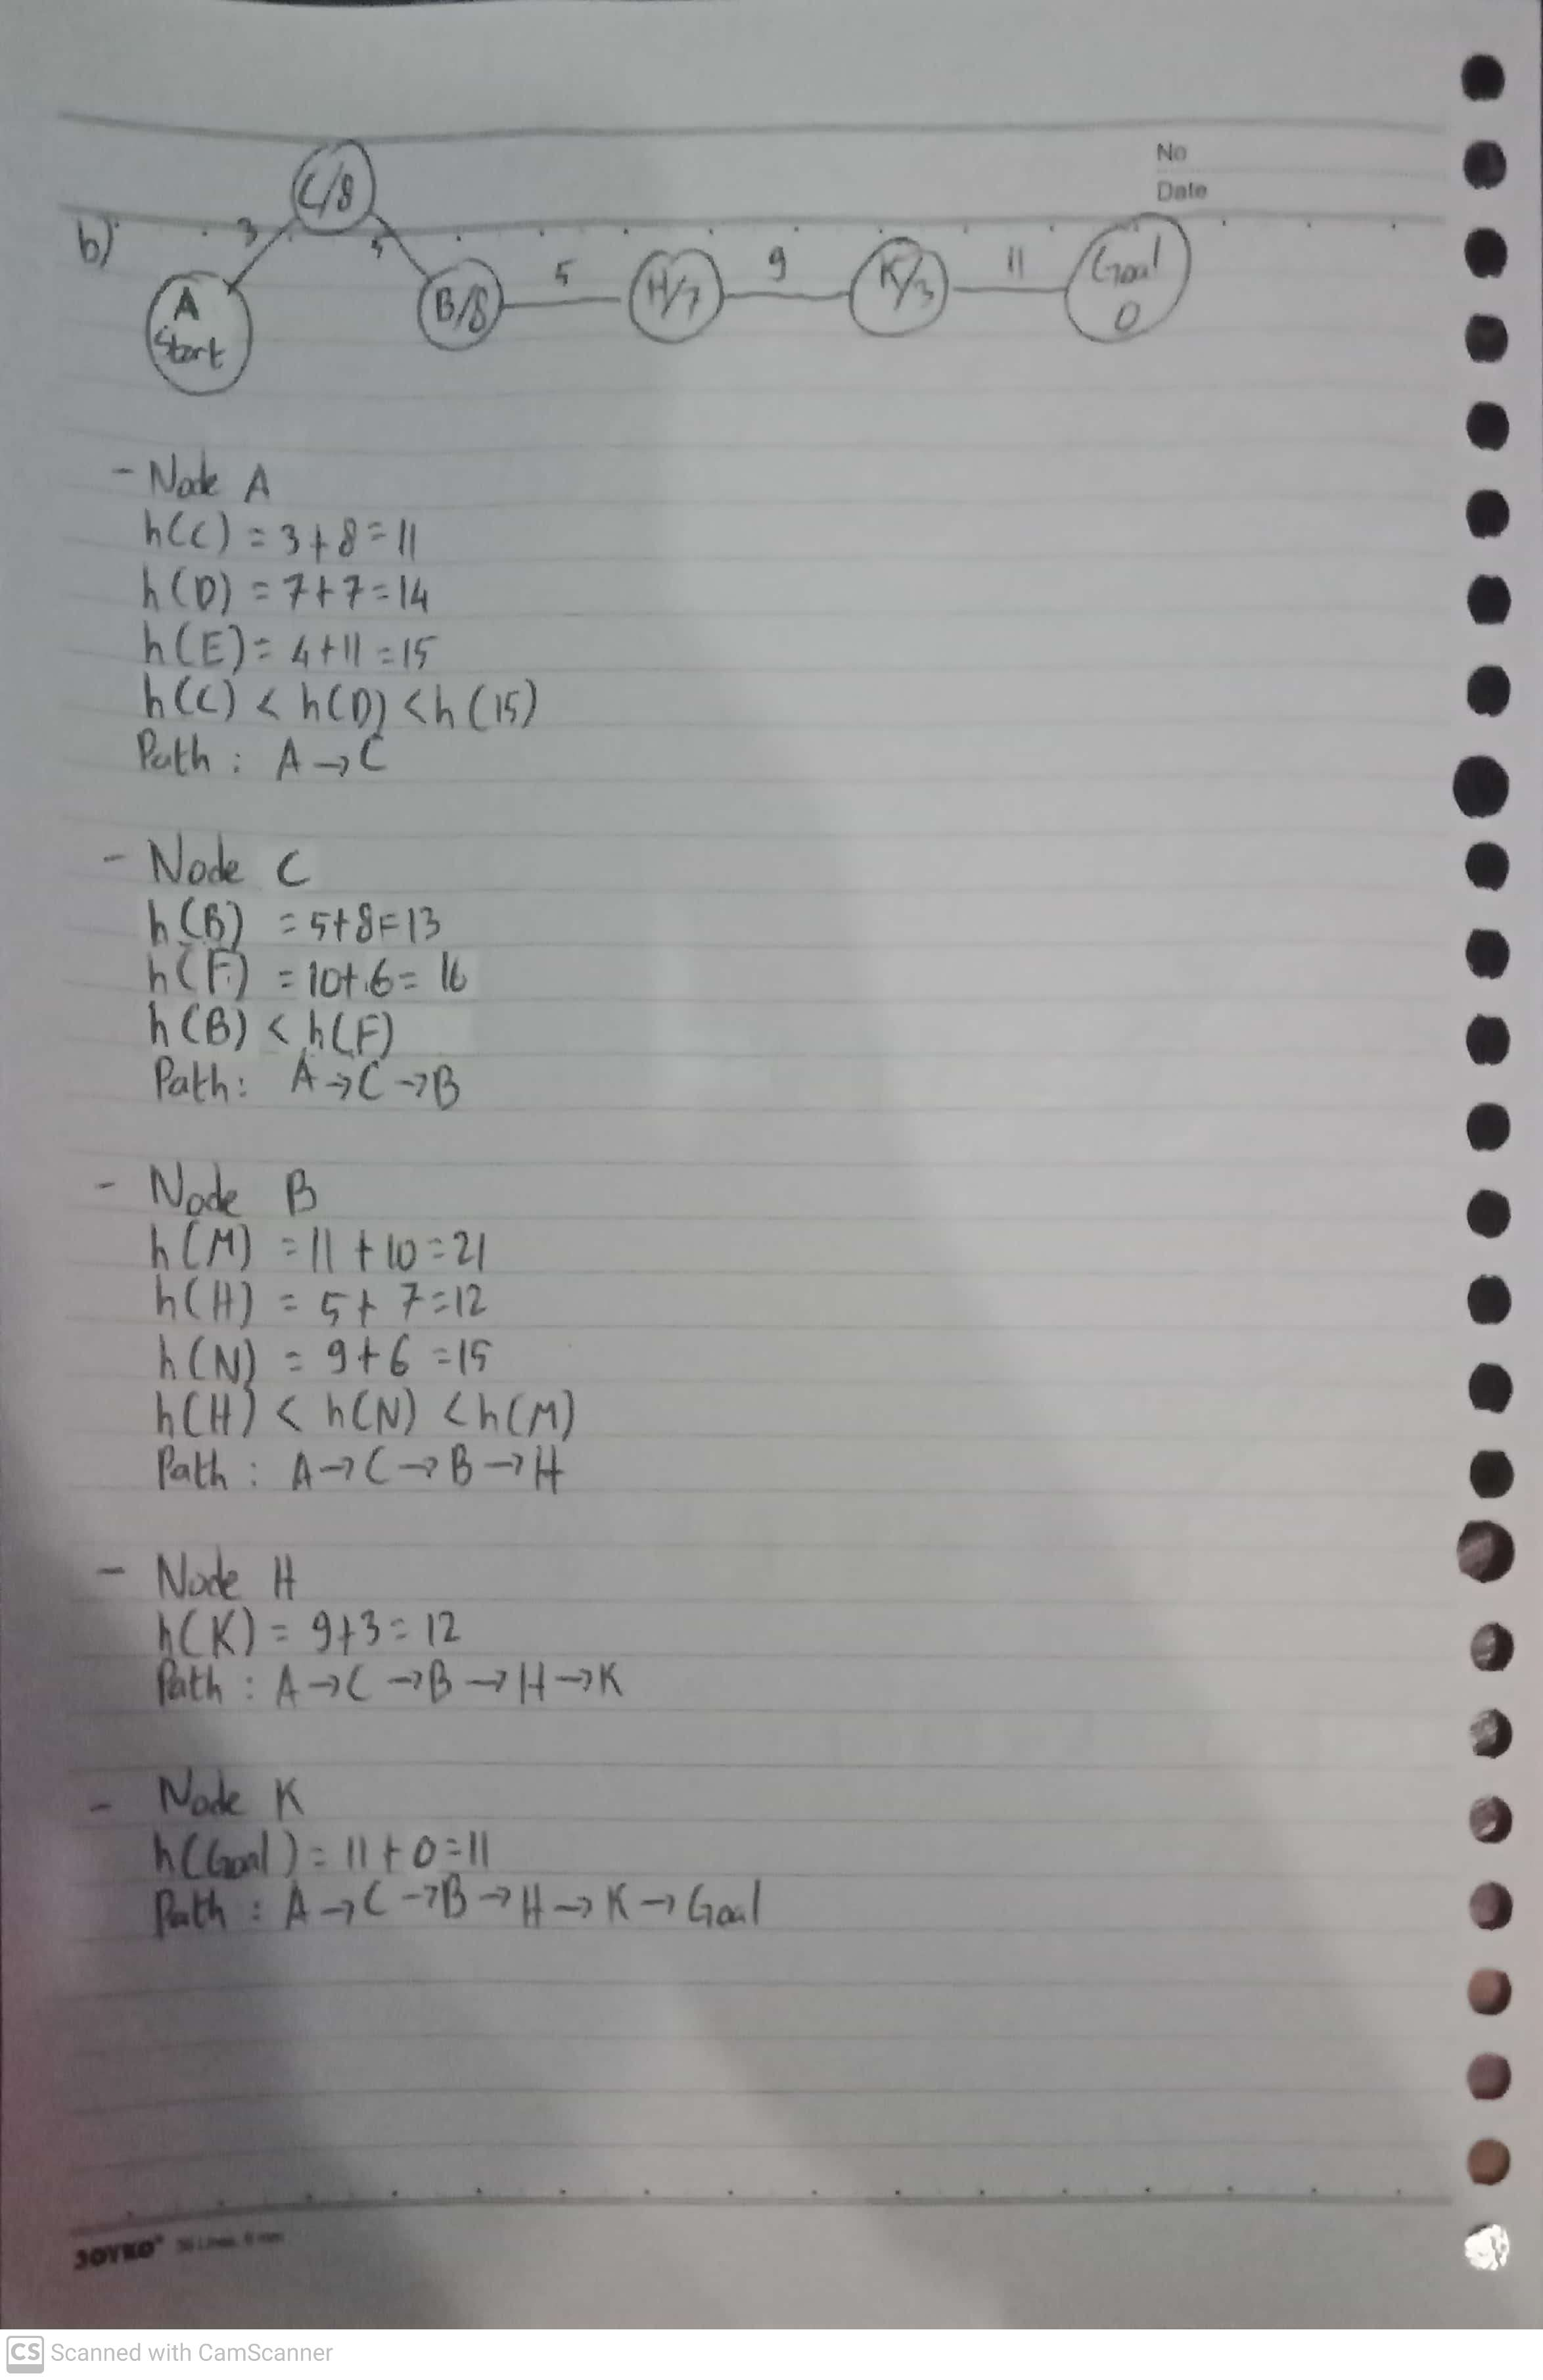 No
Date
b)
C/8
3
5
A
Start
B/8
5
H/7
9
K/3
11
Goal
0
- Node A
h(C) = 3+8=11
h(D) = 7+7=14
h(E)= 4+11=15
h(C) < h(D) <h(15)
Path : A→C
- Node C
h(B) = 5+8=13
h(F) = 10+6= 16
h(B) < h(F)
Path: A→C→B
- Node B
h(M) =11+10=21
h(H) = 5+ 7=12
h(N) = 9+6 =15
h(H) < h(N) <h(M)
Path : A→C→B→H
- Node H
h(K) = 9+3= 12
Path : A→C→B→H→K
- Node K
h(Goal) = 11+0=11
Path : A→C→B→H→K→Goal
JOYKO
CS Scanned with CamScanner